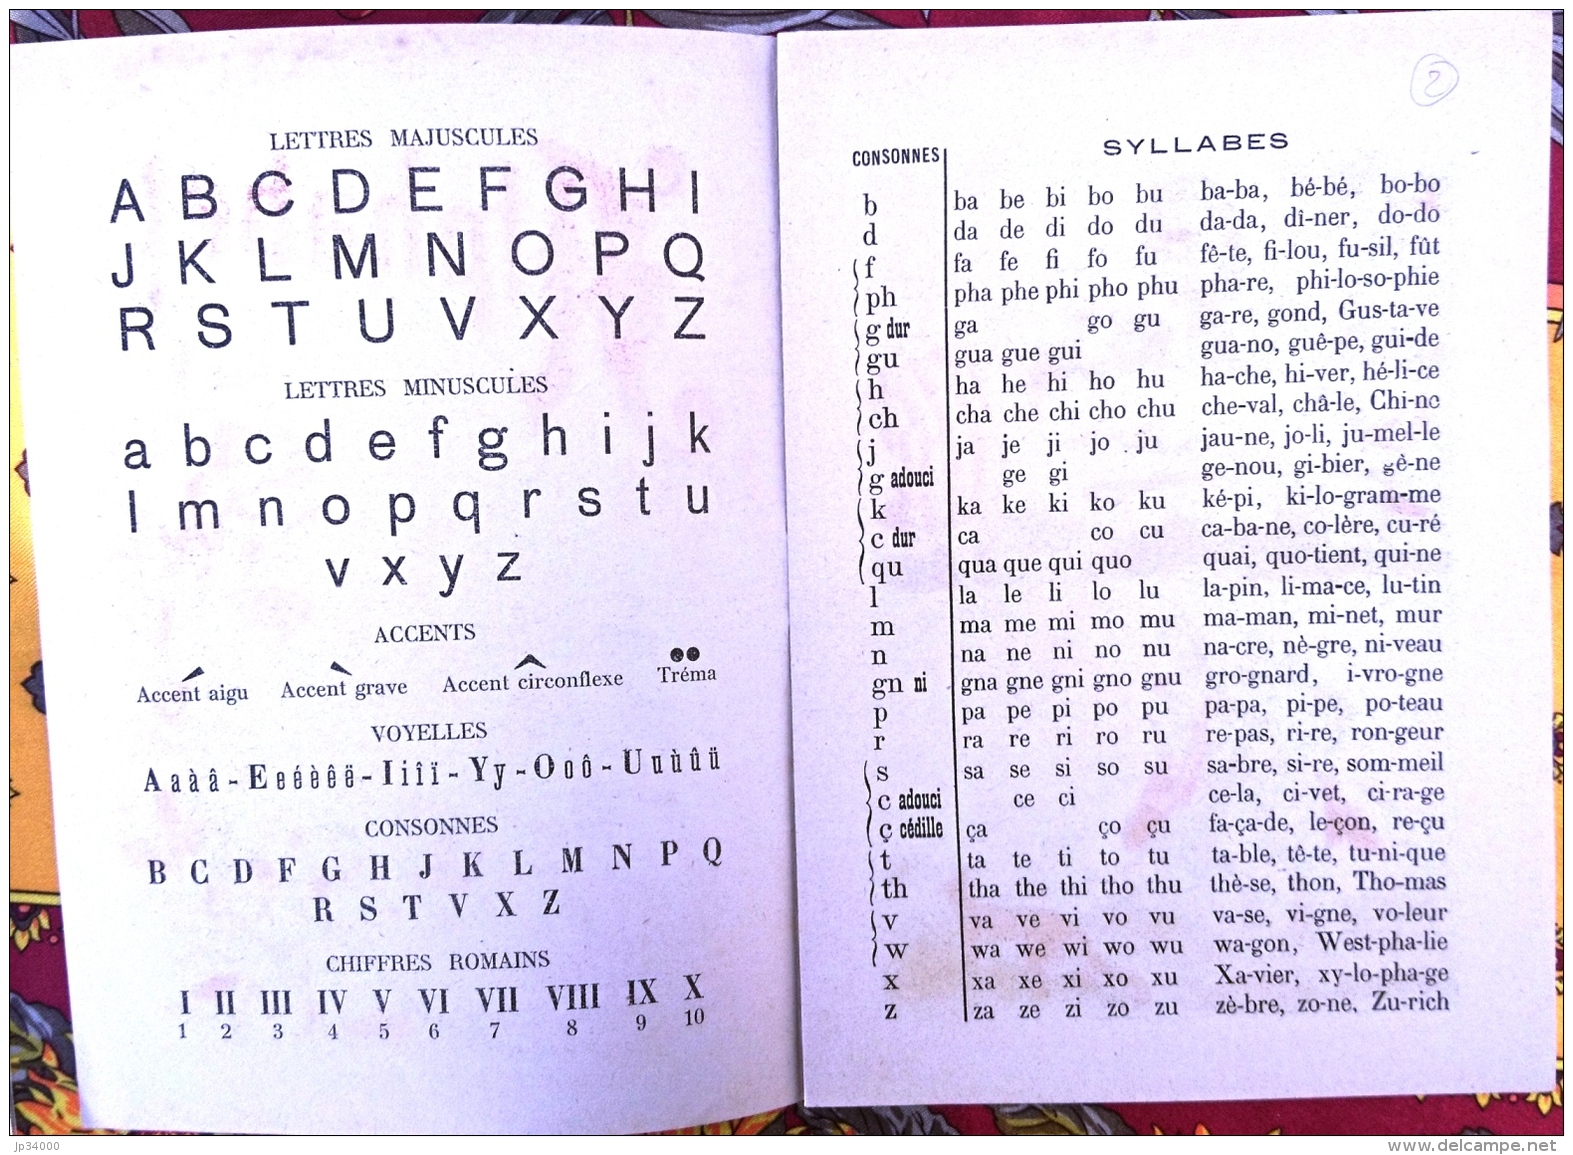 LETTRES MAJUSCULES
A B C D E F G H I
J K L M N O P Q
R S T U V X Y Z
LETTRES MINUSCULES
a b c d e f g h i j k
l m n o p q r s t u
v x y z
ACCENTS
Accent aigu Accent grave Accent circonflexe Tréma
VOYELLES
A a à â - E e é è ê ë - I i î ï - Y y - O o ô - U u ù û ü
CONSONNES
B C D F G H J K L M N P Q
R S T V X Z
CHIFFRES ROMAINS
I II III IV V VI VII VIII IX X
1 2 3 4 5 6 7 8 9 10
2
CONSONNES SYLLABES
b ba be bi bo bu ba-ba, bé-bé, bo-bo
d da de di do du da-da, dî-ner, do-do
f fa fe fi fo fu fê-te, fi-lou, fu-sil, fût
ph pha phe phi pho phu pha-re, phi-lo-so-phie
g dur ga go gu ga-re, gond, Gus-ta-ve
gu gua gue gui gua-no, guê-pe, gui-de
h ha he hi ho hu ha-che, hi-ver, hé-li-ce
ch cha che chi cho chu che-val, châ-le, Chi-ne
j ja je ji jo ju jau-ne, jo-li, ju-mel-le
g adouci ge gi ge-nou, gi-bier, gê-ne
k ka ke ki ko ku ké-pi, ki-lo-gram-me
c dur ca co cu ca-ba-ne, co-lère, cu-ré
qu qua que qui quo quai, quo-tient, qui-ne
l la le li lo lu la-pin, li-ma-ce, lu-tin
m ma me mi mo mu ma-man, mi-net, mur
n na ne ni no nu na-cre, nè-gre, ni-veau
gn ni gna gne gni gno gnu gro-gnard, i-vro-gne
p pa pe pi po pu pa-pa, pi-pe, po-teau
r ra re ri ro ru re-pas, ri-re, ron-geur
s sa se si so su sa-bre, si-re, som-meil
c adouci ce ci ce-la, ci-vet, ci-ra-ge
ç cédille ça ço çu fa-ça-de, le-çon, re-çu
t ta te ti to tu ta-ble, tê-te, tu-ni-que
th tha the thi tho thu thè-se, thon, Tho-mas
v va ve vi vo vu va-se, vi-gne, vo-leur
w wa we wi wo wu wa-gon, West-pha-lie
x xa xe xi xo xu Xa-vier, xy-lo-pha-ge
z za ze zi zo zu zè-bre, zo-ne, Zu-rich
jp34000
www.delcampe.net